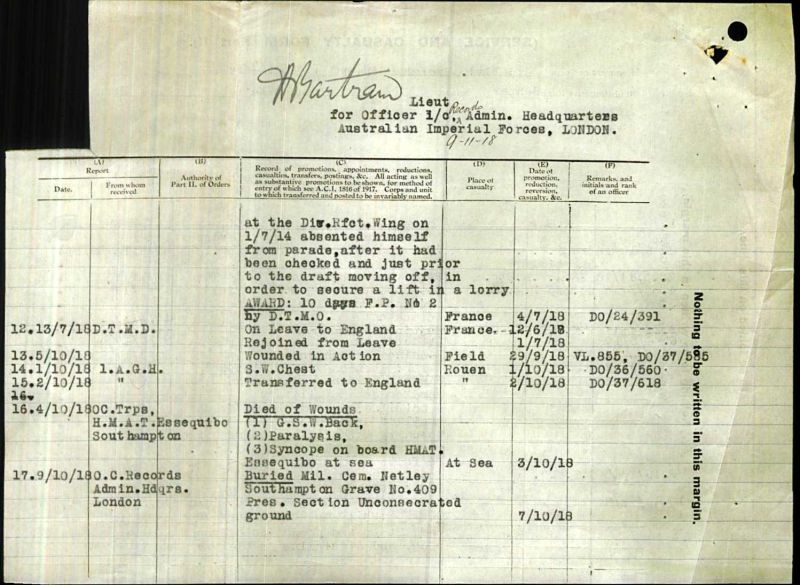 (SERVICE AND CASUALTY FORM
HBartram
Lieut
for Officer i/c, Records Admin. Headquarters
Australian Imperial Forces, LONDON.
9-11-18
(A) (B) (C) (D) (E) (F)
Report
Date. From whom received
Authority of Part II. of Orders
Record of promotions, appointments, reductions, casualties, transfers, postings, &c. All acting as well as substantive promotions to be shown, for method of entry of which see A.C.I., 1816 of 1917. Corps and unit to which transferred and posted to be invariably named.
Place of casualty
Date of promotion, reduction, reversion, casualty, &c.
Remarks, and initials and rank of an officer
at the Div.Rfct.Wing on
1/7/14 absented himself
from parade,after it had
been checked and just prior
to the draft moving off, in
order to secure a lift in a lorry
AWARD: 10 days F.P. No 2
by D.T.M.O. France 4/7/18 DO/24/391
12.13/7/18 D.T.M.D. On Leave to England France. 12/6/18
Rejoined from Leave 1/7/18
13.5/10/18 Wounded in Action Field 29/9/18 VL.855, DO/37/585
14.1/10/18 1.A.G.H. S.W.Chest Rouen 1/10/18 DO/36/560
15.2/10/18 " Transferred to England " 2/10/18 DO/37/618
16.
16.4/10/18 OC.Trps, Died of Wounds
H.M.A.T.Essequibo (1) G.S.W.Back,
Southampton (2)Paralysis,
(3)Syncope on board HMAT.
Essequibo at sea At Sea 3/10/18
17.9/10/18 O.C.Records Buried Mil. Cem. Netley
Admin.Hdqrs. Southampton Grave No.409
London Pres. Section Unconsecrated
ground 7/10/18
Nothing to be written in this margin.